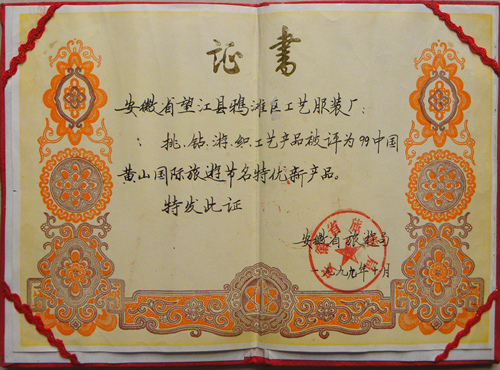 证书
安徽省望江县鸦滩区工艺服装厂:
:挑.钻.游.织工艺产品被评为99中国
黄山国际旅游节名特优新产品。
特发此证
安徽省旅游局
一九九九年十月